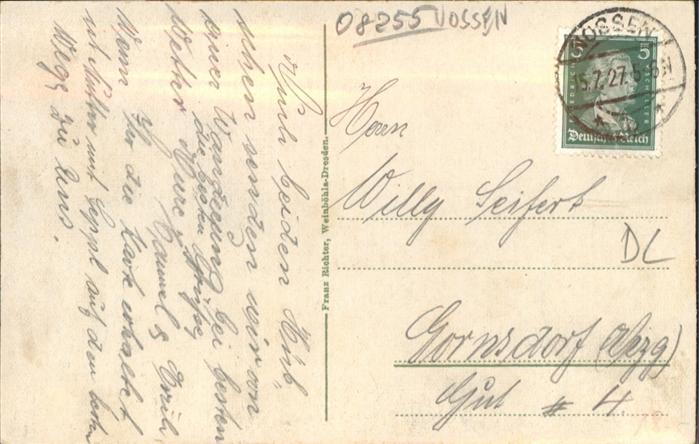 08255 NOSSEN
NOSSEN
15.7.27.5-6N
5
5
Deutsches Reich
Herrn
Willy Seifert
DL
Gornsdorf (Erzg)
Gut # 4.
Franz Richter, Weinböhla-Dresden.
Euch beiden Hüb,
schen senden wir von
einer Wanderung bei besten
Wetter
die besten Grüße
Eure
Wenn Ihr die Karte erhaltet
ist Mutter mit Seppl auf den besten
Wege zu uns.